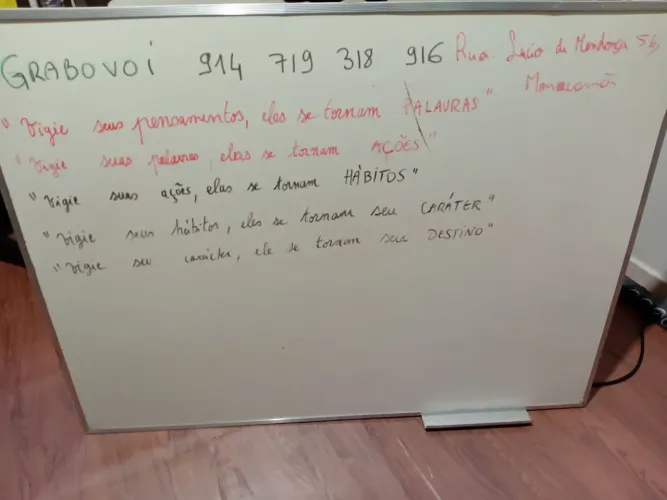 GRABOVOI 914 719 318 916 Rua Lúcio de Mendonça 56,
Maracanã
"Vigie seus pensamentos, eles se tornam PALAVRAS"
"Vigie suas palavras, elas se tornam AÇÕES"
"Vigie suas ações, elas se tornam HÁBITOS"
"Vigie seus hábitos, eles se tornam seu CARÁTER"
"Vigie seu carácter, ele se tornam seu DESTINO"